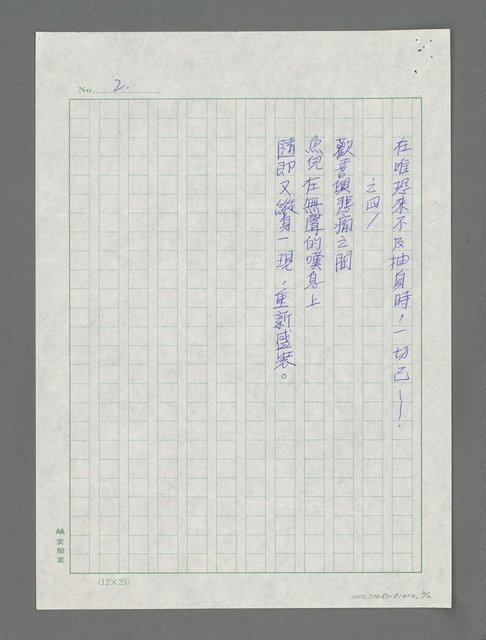 No. 2.
在唯恐來不及抽身時，一切已——.
之四／
歡喜與悲痛之間
魚兒在無聲的嘆息上
隨即又縱身一現，重新盛裝。
(12×25)